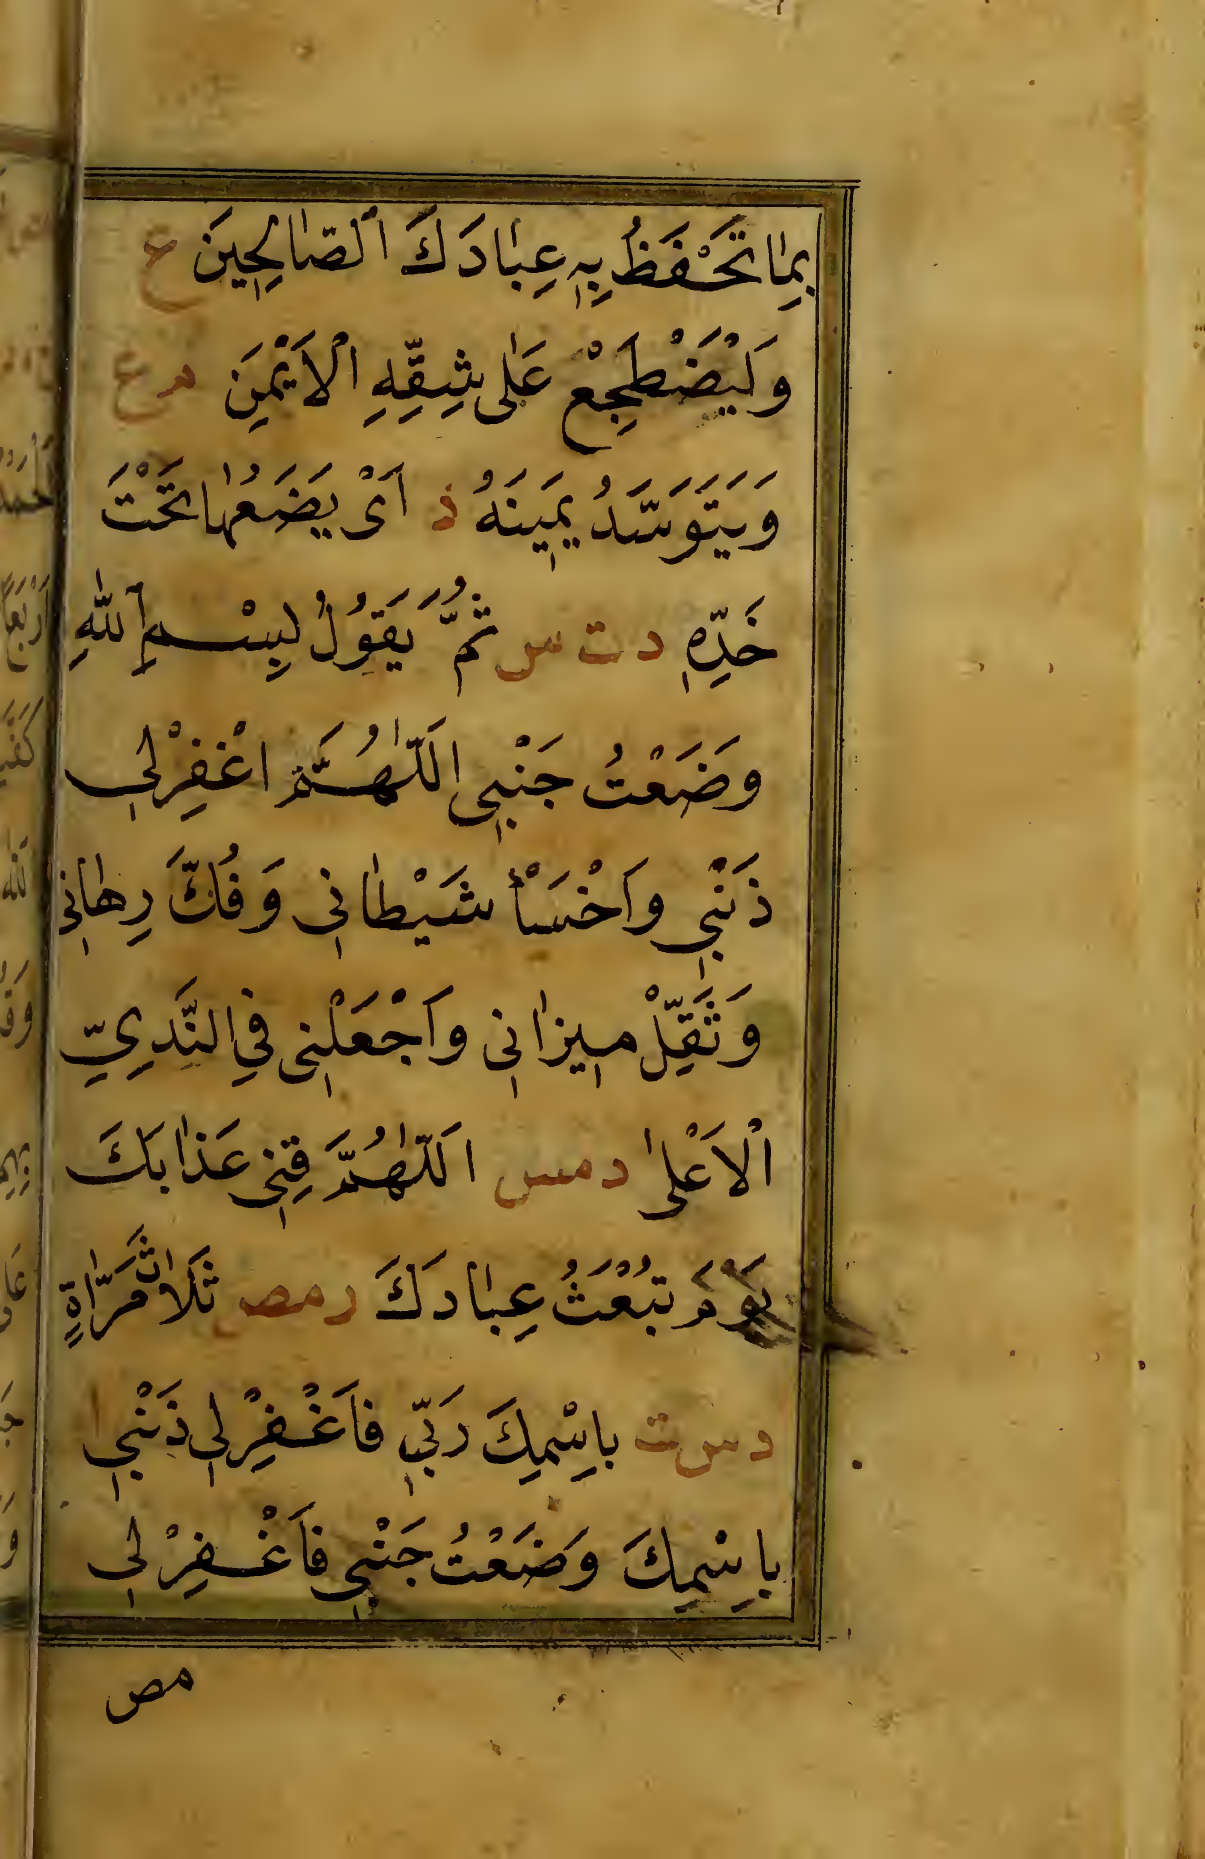 بِمَا تَحْفَظُ بِهِ عِبَادَكَ الصَّالِحِينَ ع
وَلْيَضْطَجِعْ عَلَى شِقِّهِ الْاَيْمَنِ م ع
وَيَتَوَسَّدُ يَمِينَهُ د اَىْ يَضَعُهَا تَحْتَ
خَدِّهِ د ت س ثُمَّ يَقُولُ بِسْمِ اللّٰهِ
وَضَعْتُ جَنْبِى اَللّٰهُمَّ اغْفِرْلِى
ذَنْبِى وَاَخْسَأْ شَيْطَانِى وَفُكَّ رِهَانِى
وَثَقِّلْ مِيزَانِى وَاَجْعَلْنِى فِى النَّدِيِّ
الْاَعْلٰى د مس اَللّٰهُمَّ قِنِى عَذَابَكَ
يَوْمَ تَبْعَثُ عِبَادَكَ ر مص ثَلَاثَ مَرَّاةٍ
د س ت بِاسْمِكَ رَبِّى فَاَغْفِرْلِى ذَنْبِى ا
بِاسْمِكَ وَضَعْتُ جَنْبِى فَاَغْفِرْ لِى
مص